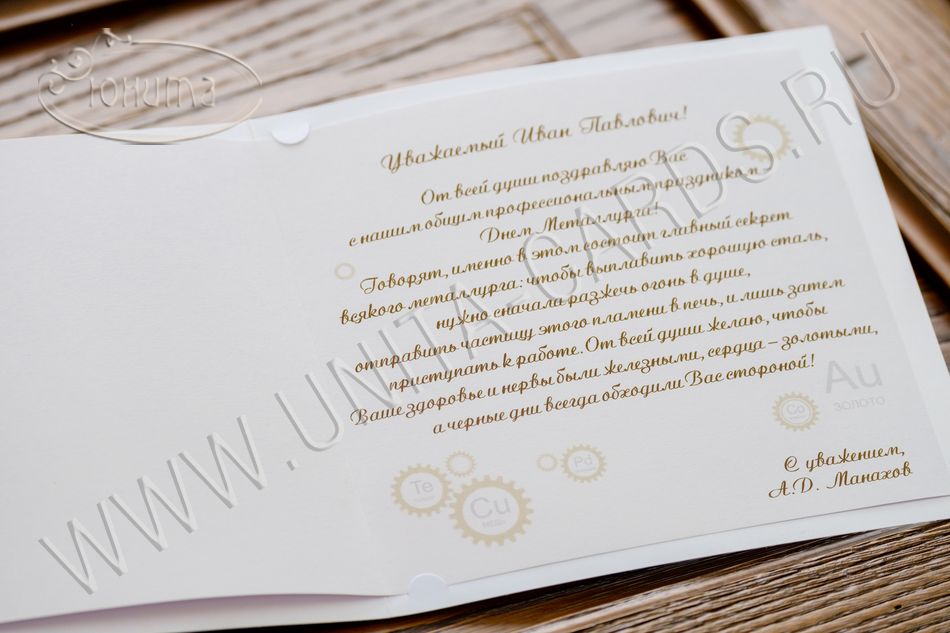 Юнита
WWW.UNITA-CARDS.RU
Уважаемый Иван Павлович!
От всей души поздравляю Вас
с нашим общим профессиональным праздником –
Днем Металлурга!
Говорят, именно в этом состоит главный секрет
всякого металлурга: чтобы выплавить хорошую сталь,
нужно сначала разжечь огонь в душе,
отправить частицу этого пламени в печь, и лишь затем
приступать к работе. От всей души желаю, чтобы
Ваше здоровье и нервы были железными, сердца – золотыми,
а черные дни всегда обходили Вас стороной!
Au
ЗОЛОТО
Co
Te
Cu
МЕДЬ
Pd
С уважением,
А.Д. Манахов